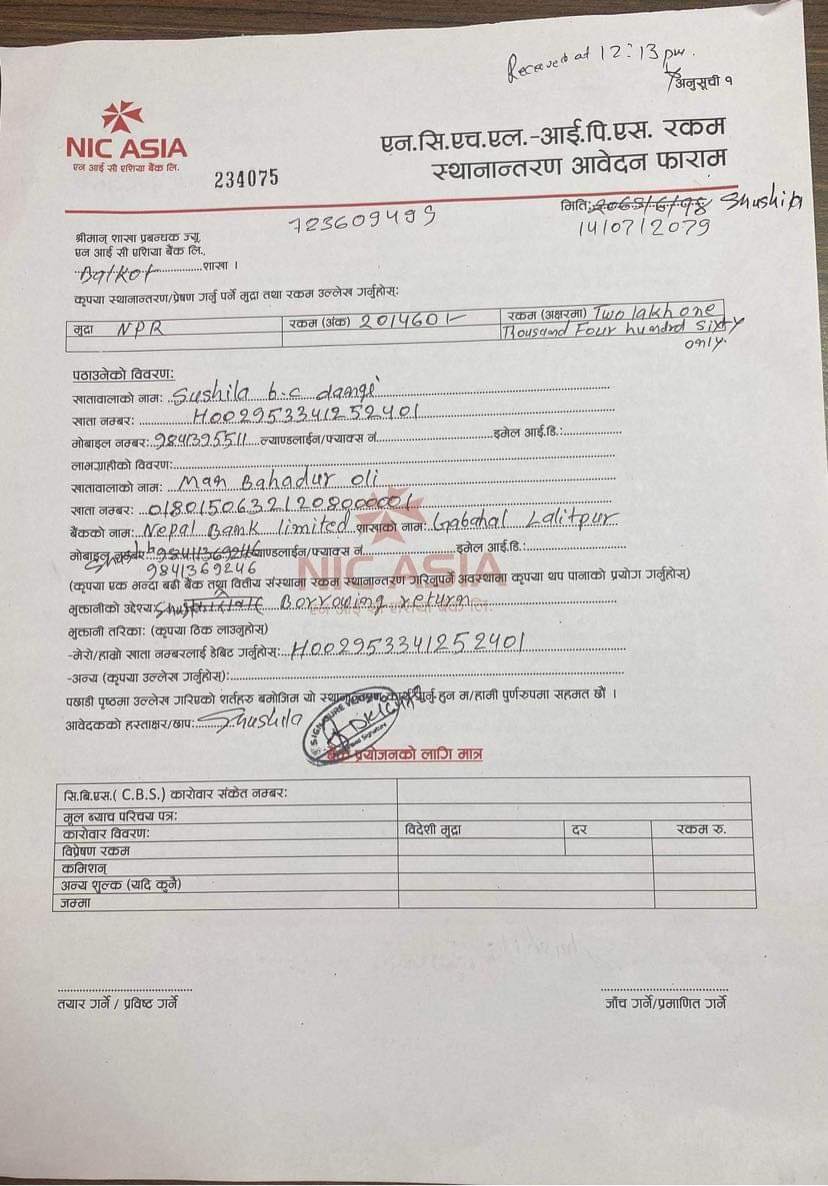 Received at 12:13 pm.
अनुसूची १
NIC ASIA
एन आई सी एशिया बैंक लि.
234075
एन.सि.एच.एल.-आई.पि.एस. रकम
स्थानान्तरण आवेदन फाराम
मिति: Shushila
723609499
14/07/2079
श्रीमान् शाखा प्रबन्धक ज्यू,
एन आई सी एशिया बैंक लि.,
Balkot शाखा ।
कृपया स्थानान्तरण/प्रेषण गर्नु पर्ने मुद्रा तथा रकम उल्लेख गर्नुहोस्:
मुद्रा NPR रकम (अंक) 201460/- रकम (अक्षरमा) Two lakh one
Thousand Four hundred sixty
only.
पठाउनेको विवरण:
खातावालाको नाम: Sushila b.c dangi
खाता नम्बर: H002953341252401
मोबाइल नम्बर: 9841395511 ल्याण्डलाईन/फ्याक्स नं. ईमेल आई.डि.:
लाभग्राहीको विवरण:
खातावालाको नाम: Man Bahadur oli
खाता नम्बर: 01801506321208000001
बैंकको नाम: Nepal Bank limited शाखाको नाम: Gabahal Lalitpur
मोबाइल ल्याण्डलाईन/फ्याक्स नं. ईमेल आई.डि.:
9841369246
(कृपया एक भन्दा बढी बैंक तथा वित्तीय संस्थामा रकम स्थानान्तरण गरिनुपर्ने अवस्थामा कृपया थप पानाको प्रयोग गर्नुहोस्)
NIC ASIA
भुक्तानीको उद्देश्य: Borrowing return
एन आई सी एशिया बैंक लि.
भुक्तानी तरिका: (कृपया ठिक लाउनुहोस्)
-मेरो/हाम्रो खाता नम्बरलाई डेबिट गर्नुहोस्: H002953341252401
-अन्य (कृपया उल्लेख गर्नुहोस्):
पछाडी पृष्ठमा उल्लेख गरिएको शर्तहरु बमोजिम यो स्थानान्तरण कार्य गर्नु हुन म/हामी पुर्णरुपमा सहमत छौं ।
आवेदकको हस्ताक्षर/छाप: Shushila
बैंक प्रयोजनको लागि मात्र
सि.बि.एस.( C.B.S.) कारोवार संकेत नम्बर:
मूल ब्याच परिचय पत्र:
कारोवार विवरण: विदेशी मुद्रा दर रकम रु.
विप्रेषण रकम
कमिशन्
अन्य शुल्क (यदि कुनै)
जम्मा
तयार गर्ने / प्रविष्ट गर्ने जाँच गर्ने/प्रमाणित गर्ने